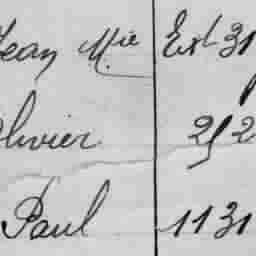 Jean Mie Ext 31
Olivier 2
Paul 1131